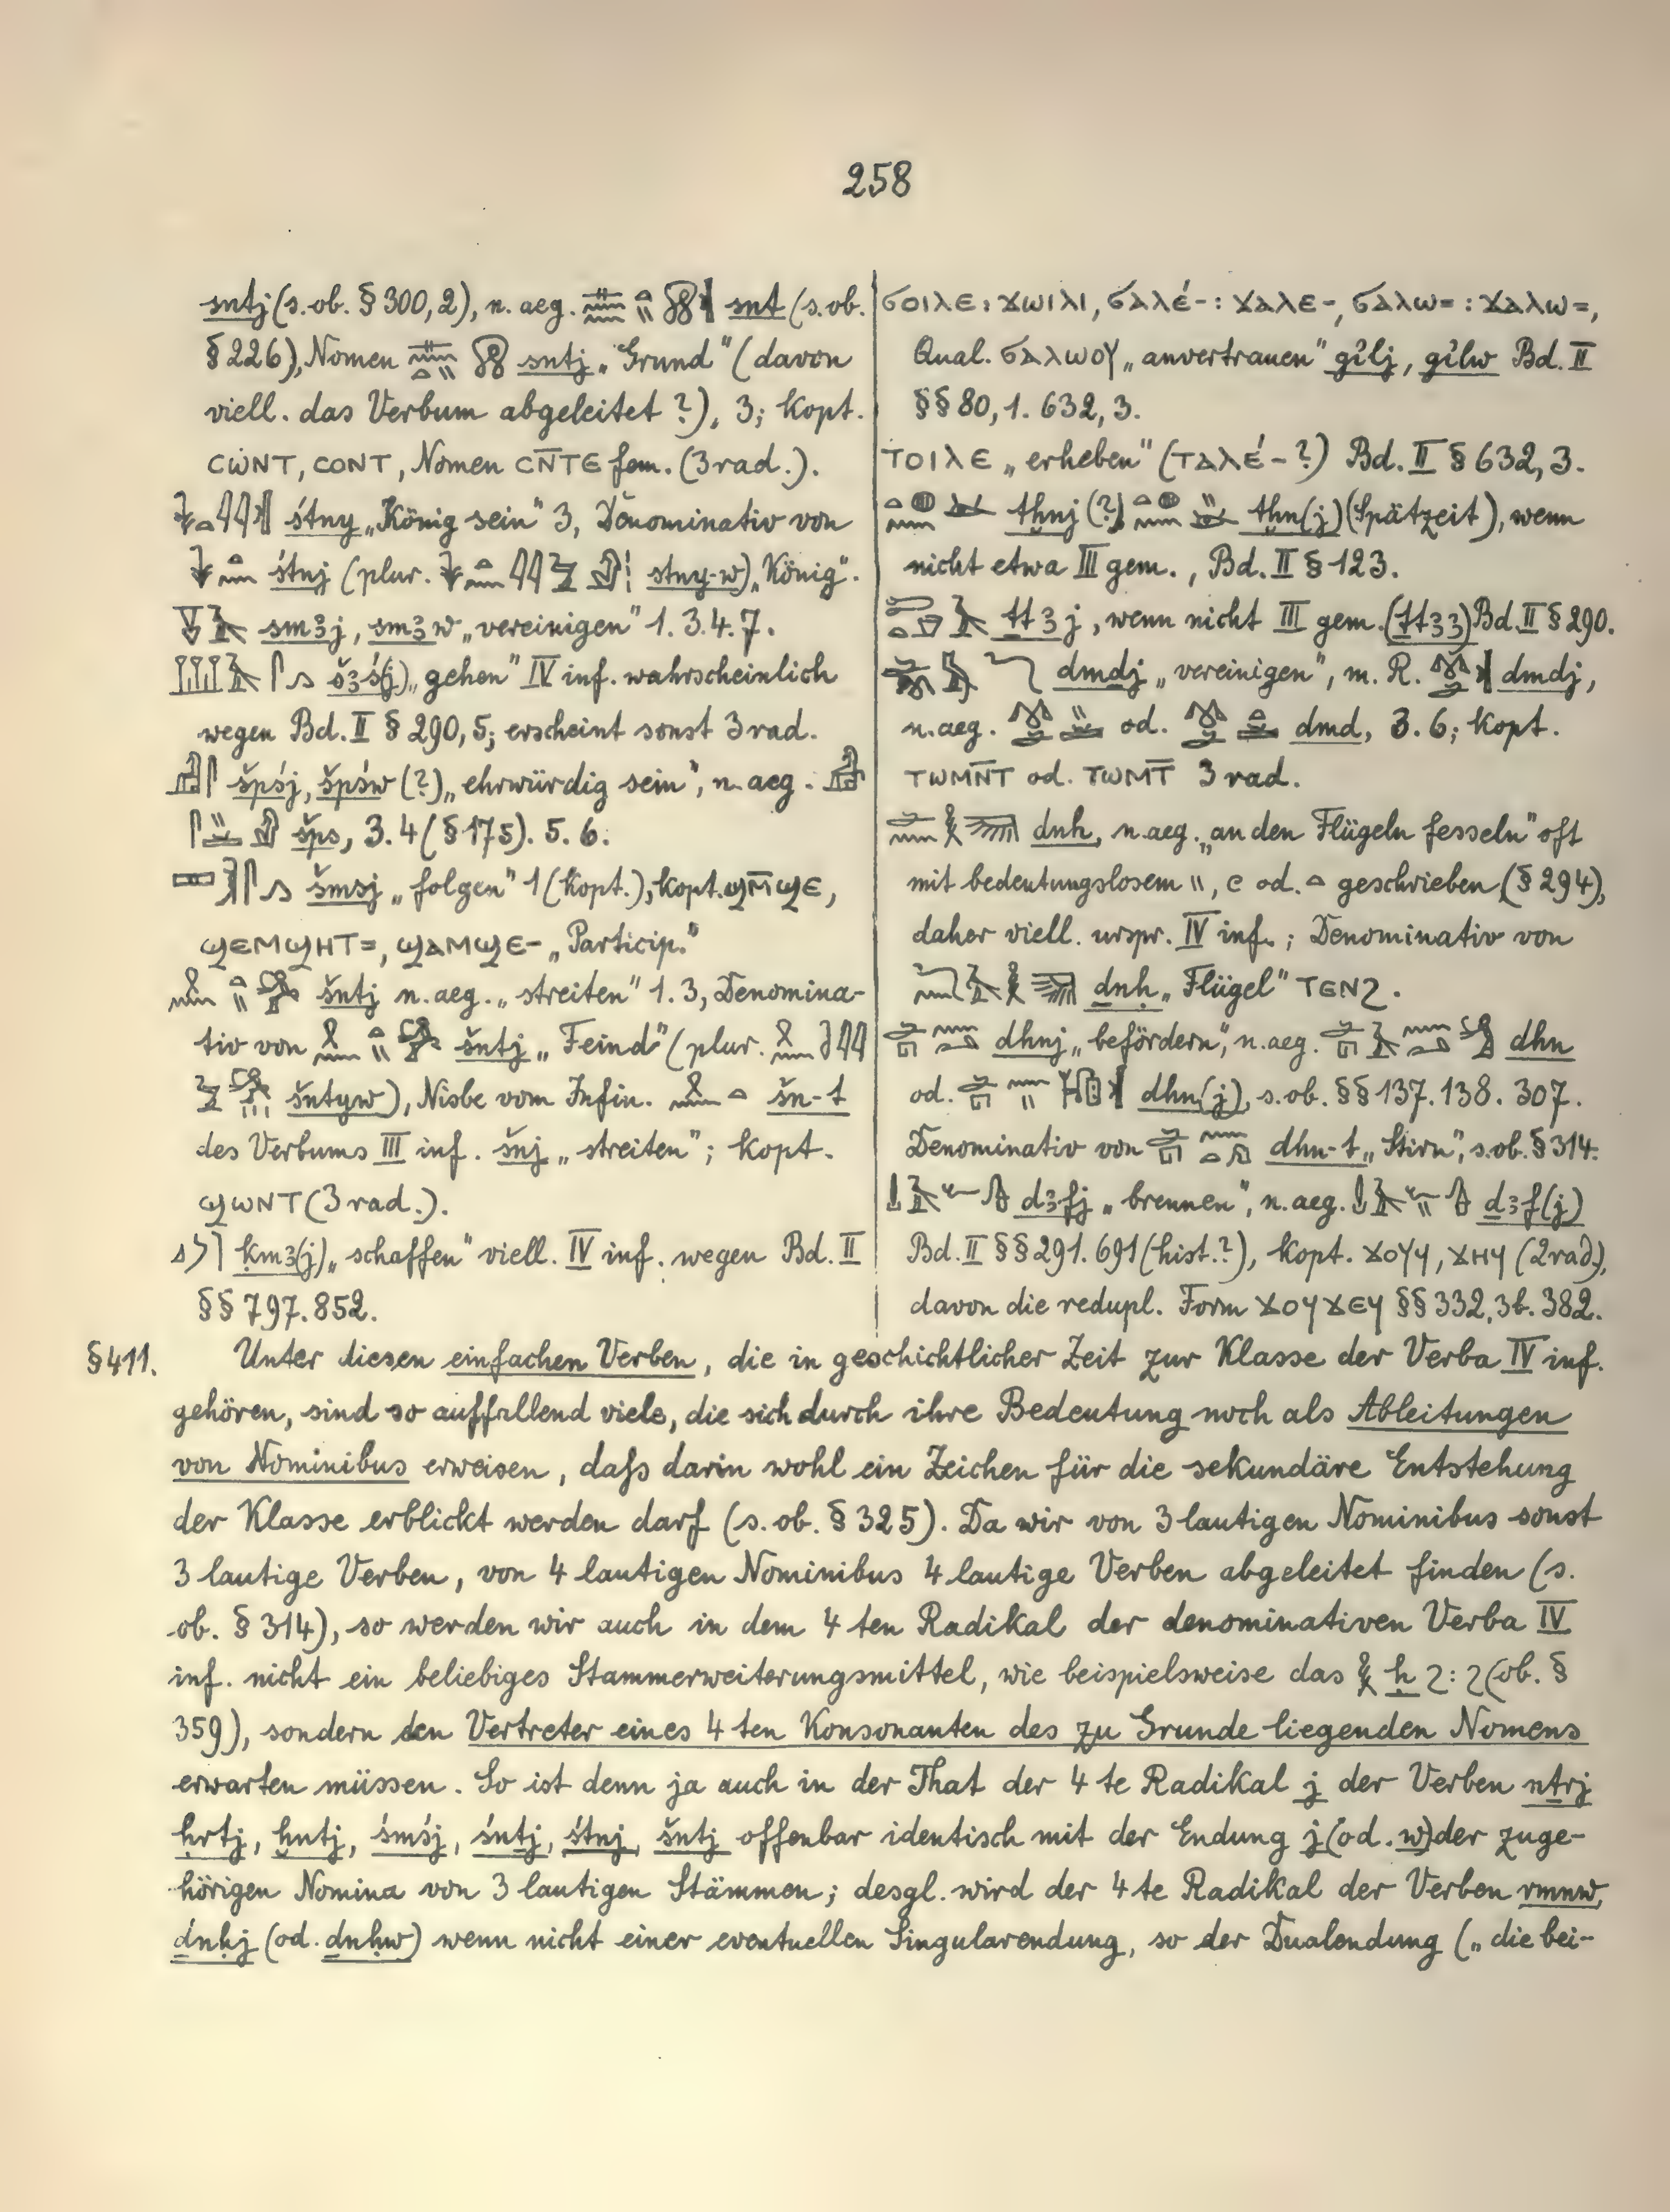 258
sntj (s. ob. § 300, 2), n. aeg. snt (s. ob.
§ 226), Nomen sntj „Grund" (davon
viell. das Verbum abgeleitet?), 3; kopt.
ⲥⲱⲛⲧ, ⲥⲟⲛⲧ, Nomen ⲥⲛ̅ⲧⲉ fem. (3 rad.).
śtny „König sein" 3, Denominativ von
śtnj (plur. stny-w) „König".
sm3j, sm3w „vereinigen" 1. 3. 4. 7.
š3ś(j) „gehen" IV inf. wahrscheinlich
wegen Bd. II § 290, 5; erscheint sonst 3 rad.
špśj, špśw (?) „ehrwürdig sein", n. aeg.
šps, 3. 4 (§ 175). 5. 6.
šmsj „folgen" 1 (kopt.); kopt. ϣⲙ̅ϣⲉ,
ϣⲉⲙϣⲏⲧ=, ϣⲁⲙϣⲉ- „Particip."
šntj n. aeg. „streiten" 1. 3, Denomina-
tiv von šntj „Feind" (plur.
šntyw), Nisbe vom Infin. šn-t
des Verbums III inf. šnj „streiten"; kopt.
ϣⲱⲛⲧ (3 rad.).
ḳm3(j) „schaffen" viell. IV inf. wegen Bd. II
§§ 797. 852.
ϭⲟⲓⲗⲉ: ϫⲱⲓⲗⲓ, ϭⲁⲗⲉ́-: ϫⲁⲗⲉ-, ϭⲁⲗⲱ=: ϫⲁⲗⲱ=,
Qual. ϭⲁⲗⲱⲟⲩ „anvertrauen" gı͗lj, gı͗lw Bd. II
§§ 80, 1. 632, 3.
ⲧⲟⲓⲗⲉ „erheben" (ⲧⲁⲗⲉ́-?) Bd. II § 632, 3.
tḫnj (?) tḫn(j) (Spätzeit), wenn
nicht etwa III gem., Bd. II § 123.
ṯt3j, wenn nicht III gem. (ṯt33) Bd. II § 290.
dmdj „vereinigen", m. R. dmdj,
n. aeg. od. dmd, 3. 6; kopt.
ⲧⲱⲙⲛ̅ⲧ od. ⲧⲱⲙⲧ̅ 3 rad.
dnḥ, n. aeg. „an den Flügeln fesseln" oft
mit bedeutungslosem geschrieben (§ 294),
daher viell. urspr. IV inf.; Denominativ von
ḏnḥ „Flügel" ⲧⲉⲛϩ.
dhnj „befördern", n. aeg. dhn
od. dhn(j), s. ob. §§ 137. 138. 307.
Denominativ von dhn-t „Stirn", s. ob. § 314.
ḏ3fj „brennen", n. aeg. ḏ3f(j)
Bd. II §§ 291. 691 (hist.?), kopt. ϫⲟⲩϥ, ϫⲏϥ (2 rad.),
davon die redupl. Form ϫⲟⲩϫⲉϥ §§ 332, 3b. 382.
§ 411. Unter diesen einfachen Verben, die in geschichtlicher Zeit zur Klasse der Verba IV inf.
gehören, sind so auffallend viele, die sich durch ihre Bedeutung noch als Ableitungen
von Nominibus erweisen, daſs darin wohl ein Zeichen für die sekundäre Entstehung
der Klasse erblickt werden darf (s. ob. § 325). Da wir von 3 lautigen Nominibus sonst
3 lautige Verben, von 4 lautigen Nominibus 4 lautige Verben abgeleitet finden (s.
ob. § 314), so werden wir auch in dem 4 ten Radikal der denominativen Verba IV
inf. nicht ein beliebiges Stammerweiterungsmittel, wie beispielsweise das ḥ ϩ: ϩ (ob. §
359), sondern den Vertreter eines 4 ten Konsonanten des zu Grunde liegenden Nomens
erwarten müssen. So ist denn ja auch in der That der 4 te Radikal j der Verben nṯrj
ḥrtj, ḫntj, śmśj, śntj, śtnj, šntj offenbar identisch mit der Endung j (od. w) der zuge-
hörigen Nomina von 3 lautigen Stämmen; desgl. wird der 4 te Radikal der Verben rmnw,
ḏnḥj (od. ḏnḥw) wenn nicht einer eventuellen Singularendung, so der Dualendung („die bei-